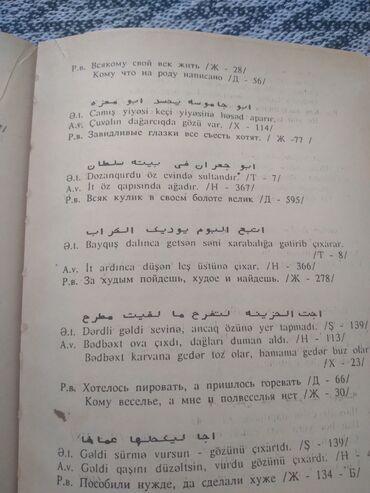 Р.в. Всякому свой век жить /Ж - 28/
Кому что на роду написано /Д - 56/
ابو جاموسه يحسد ابو معزه
Ə.t. Camış yiyəsi keçi yiyəsinə həsəd aparır.
A.v. Çuvalın dağarcıqda gözü var. /X - 114/
Р.в. Завидливые глазки все съесть хотят. / Ж -77 /
ابو جعران فى بيته سلطان
Ə.t. Dozanqurdu öz evində sultandır. /T - 7/
A.v. İt öz qapısında ağadır. /H - 367/
Р.в. Всяк кулик в своем болоте велик /Д - 595/
اتبع البوم يوديك الخراب
Ə.t. Bayquş dalınca getsən səni xarabalığa gətirib çıxarar.
/T - 8/
A.v. İt ardınca düşən leş üstünə çıxar. /H - 366/
Р.в. За худым пойдешь, худое и найдешь. /Ж - 278/
اجت الحزينه لتفرح ما لقيت مطرح
Ə.t. Dərdli gəldi sevinə, ancaq özünə yer tapmadı. /Ş - 139/
A.v. Bədbəxt ova çıxdı, dağları duman aldı. /H - 113/
Bədbəxt karvana gedər toz olar, hamama gedər buz olar
/X - 23/
Р.в. Хотелось пировать, а пришлось горевать /Д - 66/
Кому веселье, а мне и полвеселья нет /Ж - 30/
اجا ليكحلها عماها
Ə.t. Gəldi sürmə vursun - gözünü çıxartdı. /Ş - 139/
A.v. Gəldi qaşını düzəltsin, vurdu gözünü çıxardı. /H - 
Р.в. Пособили нужде, да сделали хуже /Ж - 134 - Б/